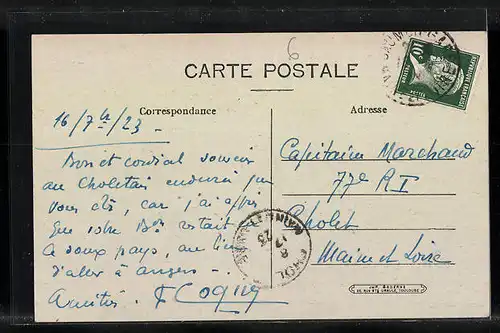 6
CARTE POSTALE
Correspondance
Adresse
16/7bre/23 –
Bon et cordial souvenir
au Choletais endurci que
vous êtes, car j'ai appris
que votre Bon restait
ce doux pays, au lieu
d'aller à Angers –
Amitiés. F Cogny
Capitaine Marchand
77e R I
Cholet
Maine et Loire
10
MAINE-ET-LOIRE
CHOLET